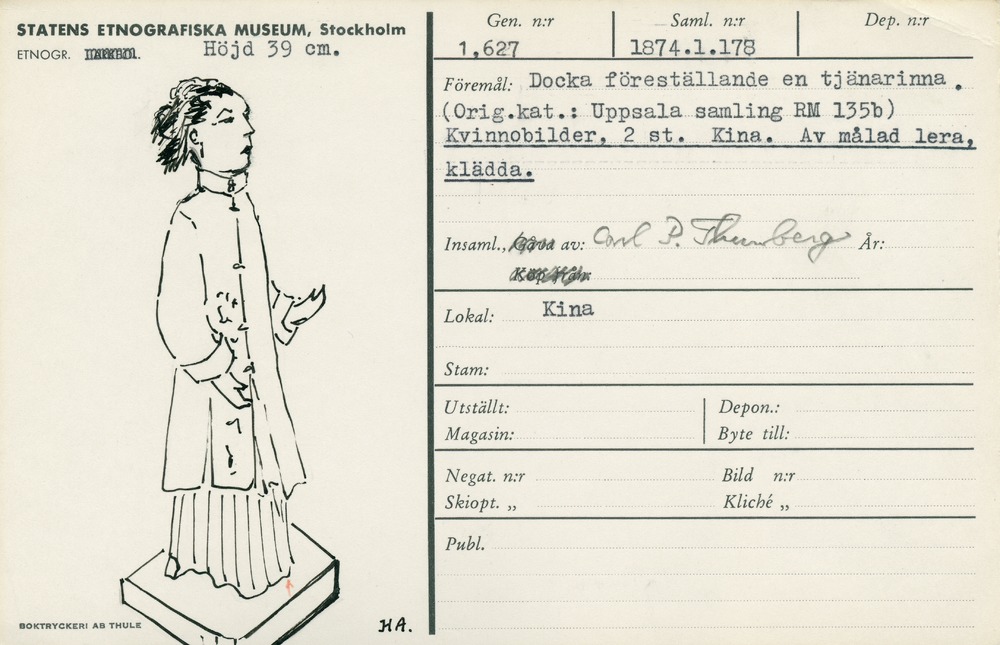 STATENS ETNOGRAFISKA MUSEUM, Stockholm
ETNOGR. Höjd 39 cm.
Gen. n:r Saml. n:r Dep. n:r
1,627 1874.1.178
Föremål: Docka föreställande en tjänarinna.
(Orig.kat.: Uppsala samling RM 135b)
Kvinnobilder, 2 st. Kina. Av målad lera,
klädda.
Insaml., Gåva av: Carl P. Thunberg År:
Köp från:
Lokal: Kina
Stam:
Utställt: Depon.:
Magasin: Byte till:
Negat. n:r Bild n:r
Skiopt. „ Kliché „
Publ.
BOKTRYCKERI AB THULE
HA.